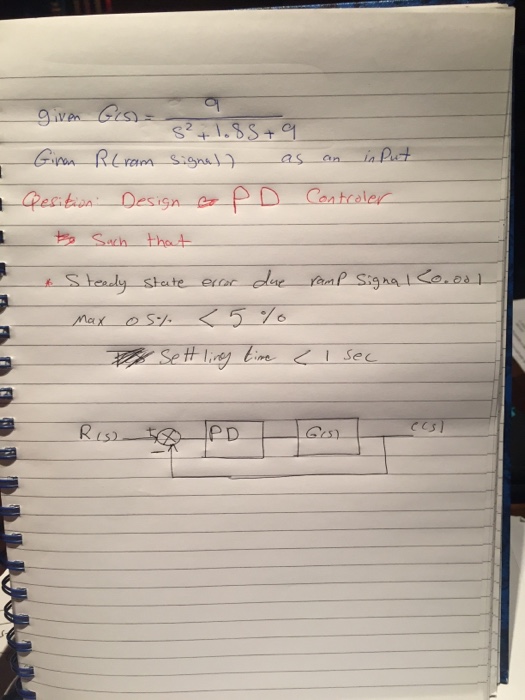 given G(s) = 9
s² + 1.8s + 9
Given R(ram signal) as an input
Qesition: Design PD Controler
Such that
* Steady state error due ramp signal <0.001
Max os% < 5%
Settling time < 1 sec
R(s) + PD G(s) c(s)
-